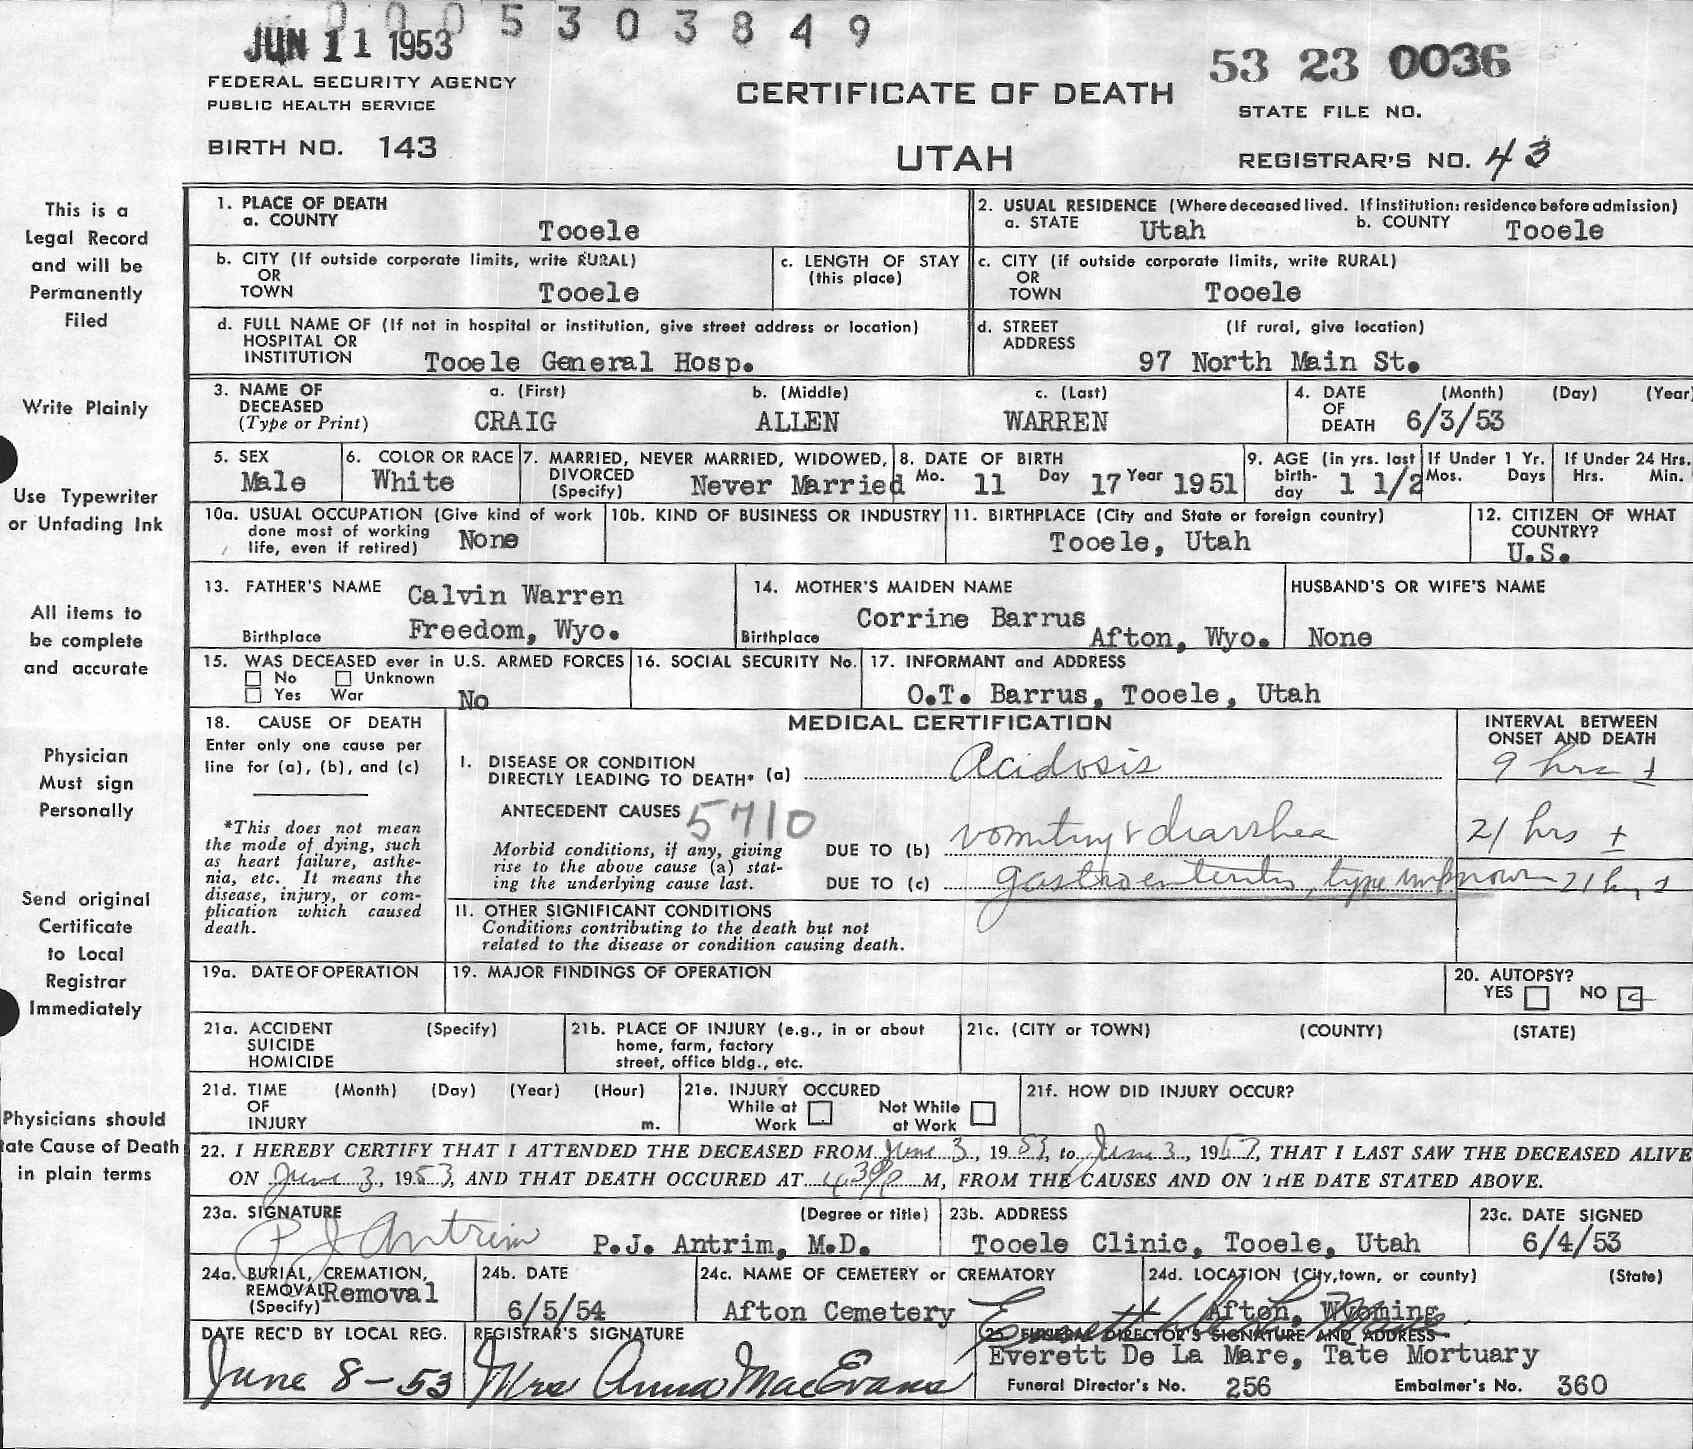 0005303849
JUN 11 1953
53 23 0036
FEDERAL SECURITY AGENCY
PUBLIC HEALTH SERVICE
CERTIFICATE OF DEATH
STATE FILE NO.
BIRTH NO. 143
UTAH
REGISTRAR'S NO. 43
This is a
Legal Record
and will be
Permanently
Filed
Write Plainly
Use Typewriter
or Unfading Ink
All items to
be complete
and accurate
Physician
Must sign
Personally
Send original
Certificate
to Local
Registrar
Immediately
Physicians should
ate Cause of Death
in plain terms
1. PLACE OF DEATH
a. COUNTY
Tooele
2. USUAL RESIDENCE (Where deceased lived. If institution: residence before admission)
a. STATE Utah b. COUNTY Tooele
b. CITY (If outside corporate limits, write RURAL)
OR
TOWN Tooele
c. LENGTH OF STAY
(this place)
c. CITY (if outside corporate limits, write RURAL)
OR
TOWN Tooele
d. FULL NAME OF (If not in hospital or institution, give street address or location)
HOSPITAL OR
INSTITUTION Tooele General Hosp.
d. STREET (If rural, give location)
ADDRESS
97 North Main St.
3. NAME OF a. (First) b. (Middle) c. (Last)
DECEASED
(Type or Print) CRAIG ALLEN WARREN
4. DATE (Month) (Day) (Year)
OF
DEATH 6/3/53
5. SEX
Male
6. COLOR OR RACE
White
7. MARRIED, NEVER MARRIED, WIDOWED,
DIVORCED
(Specify) Never Married
8. DATE OF BIRTH
Mo. 11 Day 17 Year 1951
9. AGE (in yrs. last
birth-
day 1 1/2
If Under 1 Yr.
Mos. Days
If Under 24 Hrs.
Hrs. Min.
10a. USUAL OCCUPATION (Give kind of work
done most of working
life, even if retired) None
10b. KIND OF BUSINESS OR INDUSTRY
11. BIRTHPLACE (City and State or foreign country)
Tooele, Utah
12. CITIZEN OF WHAT
COUNTRY?
U.S.
13. FATHER'S NAME Calvin Warren
Birthplace Freedom, Wyo.
14. MOTHER'S MAIDEN NAME
Corrine Barrus
Birthplace Afton, Wyo.
HUSBAND'S OR WIFE'S NAME
None
15. WAS DECEASED ever in U.S. ARMED FORCES
No Unknown
Yes War No
16. SOCIAL SECURITY No.
17. INFORMANT and ADDRESS
O.T. Barrus, Tooele, Utah
18. CAUSE OF DEATH
Enter only one cause per
line for (a), (b), and (c)
*This does not mean
the mode of dying, such
as heart failure, asthe-
nia, etc. It means the
disease, injury, or com-
plication which caused
death.
MEDICAL CERTIFICATION
INTERVAL BETWEEN
ONSET AND DEATH
I. DISEASE OR CONDITION
DIRECTLY LEADING TO DEATH* (a) Acidosis 9 hrs ±
ANTECEDENT CAUSES 5710
Morbid conditions, if any, giving
rise to the above cause (a) stat-
ing the underlying cause last.
DUE TO (b) vomiting & diarrhea 21 hrs ±
DUE TO (c) gastroenteritis, type unknown 21 hrs ±
II. OTHER SIGNIFICANT CONDITIONS
Conditions contributing to the death but not
related to the disease or condition causing death.
19a. DATE OF OPERATION
19. MAJOR FINDINGS OF OPERATION
20. AUTOPSY?
YES NO
21a. ACCIDENT (Specify)
SUICIDE
HOMICIDE
21b. PLACE OF INJURY (e.g., in or about
home, farm, factory
street, office bldg., etc.
21c. (CITY or TOWN) (COUNTY) (STATE)
21d. TIME (Month) (Day) (Year) (Hour)
OF
INJURY m.
21e. INJURY OCCURED
While at Work Not While at Work
21f. HOW DID INJURY OCCUR?
22. I HEREBY CERTIFY THAT I ATTENDED THE DECEASED FROM June 3, 1953, to June 3, 1953, THAT I LAST SAW THE DECEASED ALIVE
ON June 3, 1953, AND THAT DEATH OCCURED AT 4:30 P M, FROM THE CAUSES AND ON THE DATE STATED ABOVE.
23a. SIGNATURE (Degree or title)
P J Antrim P.J. Antrim, M.D.
23b. ADDRESS
Tooele Clinic, Tooele, Utah
23c. DATE SIGNED
6/4/53
24a. BURIAL, CREMATION,
REMOVAL Removal
(Specify)
24b. DATE
6/5/54
24c. NAME OF CEMETERY or CREMATORY
Afton Cemetery
24d. LOCATION (City, town, or county) (State)
Afton, Wyoming
DATE REC'D BY LOCAL REG.
June 8-53
REGISTRAR'S SIGNATURE
Mrs Anna MacEvans
Everett De La Mare
25. FUNERAL DIRECTOR'S SIGNATURE AND ADDRESS
Everett De La Mare, Tate Mortuary
Funeral Director's No. 256 Embalmer's No. 360